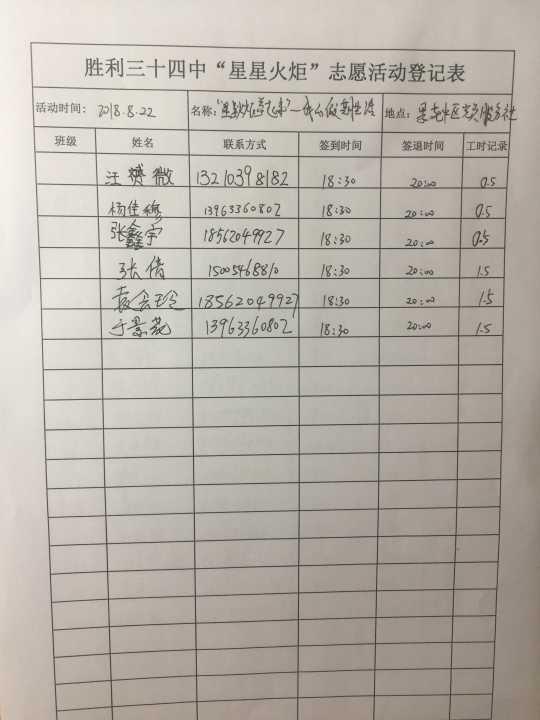 胜利三十四中“星星火炬”志愿活动登记表
活动时间: 2018.8.22 名称: 地点:
班级 姓名 联系方式 签到时间 签退时间 工时记录
汪赟微 13210398182 18:30 20:00 0.5
杨佳穆 13963360802 18:30 20:00 0.5
张鑫宇 18562049927 18:30 20:00 0.5
张倩 15005468810 18:30 20:00 1.5
袁会玲 18562049927 18:30 20:00 1.5
于景苑 13963360802 18:30 20:00 1.5